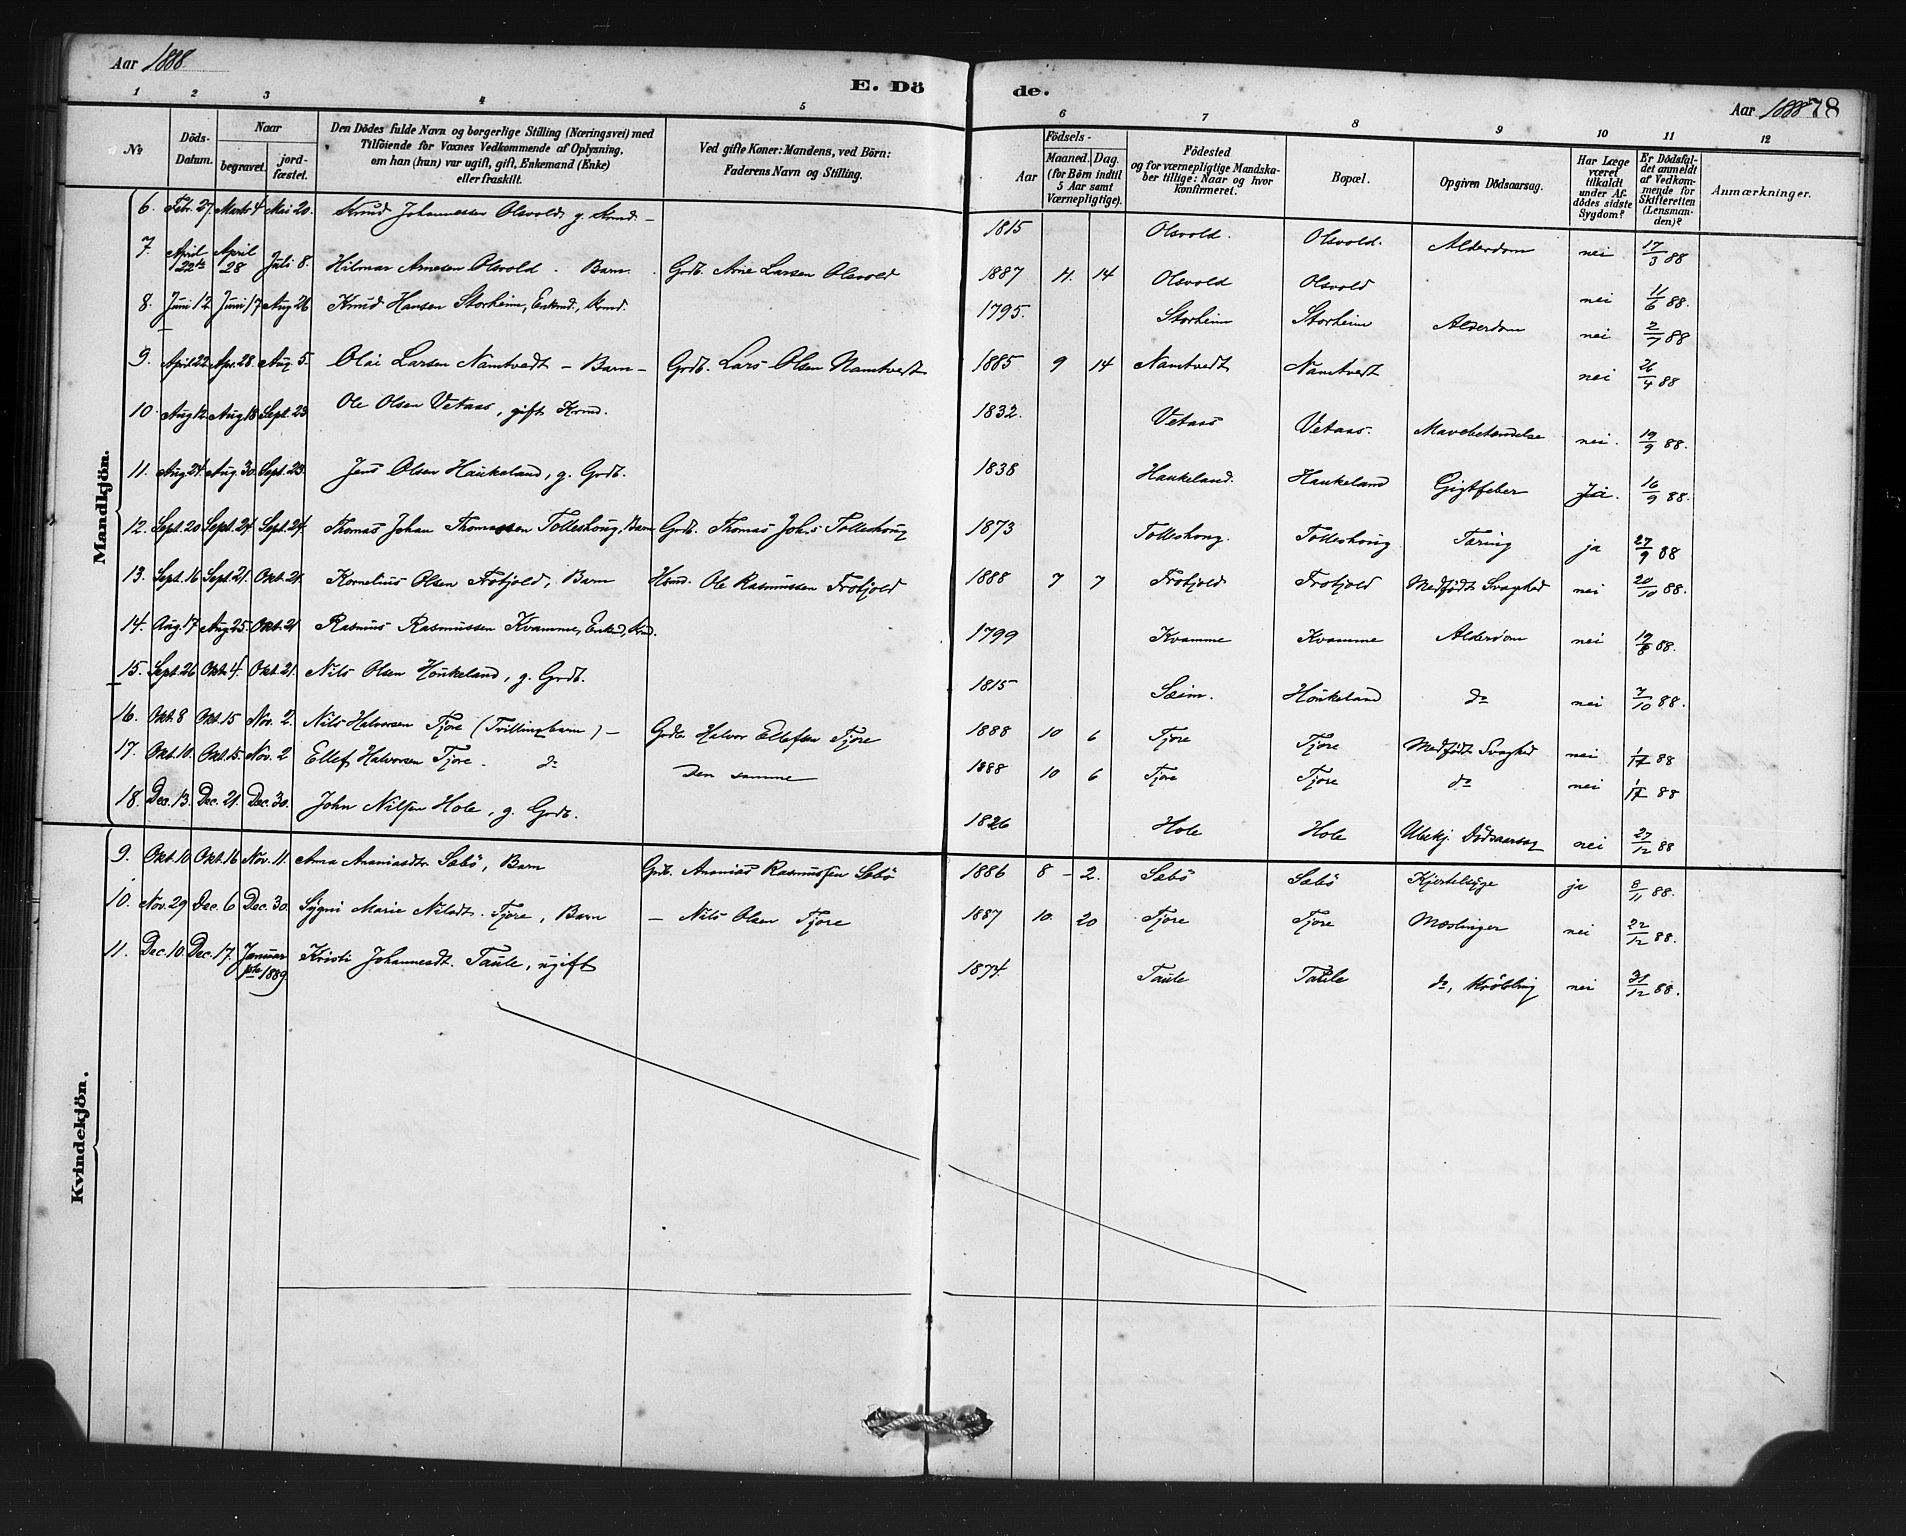 Aar 1888
E. Dö de.
Aar 1888 78
1 2 3 4 5 6 7 8 9 10 11 12
No
Döds-Datum.
Naar
begravet.
jord-fæstet.
Den Dödes fulde Navn og borgerlige Stilling (Næringsvei) med
Tilföiende for Voxnes Vedkommende af Oplysning,
om han (hun) var ugift, gift, Enkemand (Enke)
eller fraskilt.
Ved gifte Koner: Mandens, ved Börn:
Faderens Navn og Stilling.
Födsels-
Aar
Maaned. Dag.
(for Börn indtil
5 Aar samt
Værnepligtige).
Födested
og for værnepligtige Mandska-
ber tillige: Naar og hvor
konfirmeret.
Bopæl.
Opgiven Dödsaarsag.
Har Læge
været
tilkaldt
under Af-
dödes sidste
Sygdom?
Er Dödsfal-
det anmeldt
af Vedkom-
mende for
Skifteretten
(Lensman-
den)?
Anmærkninger.
Mandkjön.
6. Febr. 27. Marts 4 Mai 20. Knud Johannessen Olsvold g. Krmd. – 1815 Olsvold. Olsvold. Alderdom nei 17/3 88
7. April 22de April 28 Juli 8. Hilmar Arnesen Olsvold – Barn. Grdb. Arne Larsen Olsvold 1887 11. 14 Olsvold Olsvold nei 11/6 88.
8. Juni 12 Juni 17 Aug 26 Knud Hansen Storheim, Enkmd., Krmd. 1795. Storheim Storheim Alderdom nei 2/7 88
9. April 22 Apr. 28. Aug 5. Olai Larsen Namtvedt – Barn – Grdb. Lars Olsen Namtvedt 1885 9 14 Namtvedt Namtvedt nei 26/4 88
10. Aug 12. Aug 18. Sept. 23 Ole Olsen Vetaas, gift Krmd. 1832. Vetaas Vetaas. Mavebetændelse nei. 19/9 88.
11. Aug. 24. Aug. 30. Sept. 23. Jens Olsen Haukeland, g. Grdb. 1838 Haukeland. Haukeland Gigtfeber Ja. 16/9 88.
12. Sept. 20 Sept. 24 Sept. 24. Thomas Johan Thomassen Tolleshoug, Barn Grdb. Thomas Johs Tolleshoug 1873 Tolleshoug. Tolleshoug Tæring ja 27/9 88
13. Sept. 16 Sept. 21. Okt. 21. Kornelius Olsen Frotjold, Barn Hsmd. Ole Rasmussen Frotjold 1888 7 7 Frotjold Frotjold Medfødt Svaghed nei 20/10 88.
14. Aug. 17 Aug 25. Okt. 21 Rasmus Rasmussen Kvamme, Enkmd, Krmd. 1799 Kvamme Kvamme Alderdom nei 19/8 88.
15. Sept. 26 Okt. 4. Okt. 21. Nils Olsen Haukeland, g. Grdb. 1815 Sæim. Haukeland do nei 7/10 88.
16. Okt. 8 Okt. 15 Nov. 2. Nils Halvorsen Tjore (Tvillingbarn) – Grdb Halvor Ellefsen Tjore 1888 10 6 Tjore Tjore Medfødt Svaghed nei 88
17. Okt. 10. Okt. 15. Nov. 2 Ellef Halvorsen Tjore – do Den samme 1888 10 6 Tjore Tjore do nei 88
18. Dec. 13. Dec. 21. Dec. 30. John Nilsen Hole, g. Grdb. 1826 Hole Hole Ubekj. Dødsaarsag nei 27/12 88
Kvindekjön.
9. Okt. 10 Okt. 16 Nov. 11. Anna Ananiasdtr Sæbö, Barn Grdb. Ananias Rasmussen Sæbö 1886 8 – 2. Sæbö Sæbö Kjertelsyge ja 8/11 88.
10. Nov. 29 Dec. 6 Dec. 30. Sygni Marie Nilsdt. Tjore, Barn – Nils Olsen Tjore 1887 10. 20 Tjore Tjore Mæslinger nei 22/12 88.
11. Dec. 10. Dec. 17. Januar 1889 Kristi Johannesdt. Taule, ugift 1874. Taule Taule do, Krøbling nei 31/12 88.